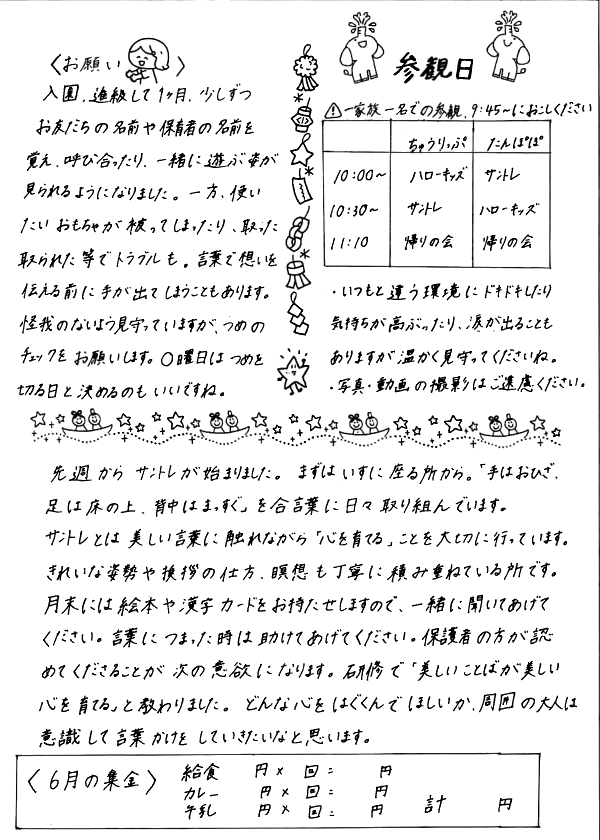 〈お願い〉
入園、進級して1ヶ月、少しずつ
お友だちの名前や保育者の名前を
覚え、呼び合ったり、一緒に遊ぶ姿が
見られるようになりました。一方、使い
たいおもちゃが被ってしまったり、取った
取られた等でトラブルも。言葉で想いを
伝える前に手が出てしまうこともあります。
怪我のないよう見守っていますが、つめの
チェックをお願いします。〇曜日はつめを
切る日と決めるのもいいですね。
参観日
⚠一家族一名での参観、9:45〜におこしください
ちゅうりっぷ たんぽぽ
10:00〜 ハローキッズ サントレ
10:30〜 サントレ ハローキッズ
11:10 帰りの会 帰りの会
・いつもと違う環境にドキドキしたり
気持ちが高ぶったり、涙が出ることも
ありますが温かく見守ってくださいね。
・写真・動画の撮影はご遠慮ください。
先週からサントレが始まりました。まずはいすに座る所から。「手はおひざ、
足は床の上、背中はまっすぐ」を合言葉に日々取り組んでいます。
サントレとは美しい言葉に触れながら「心を育てる」ことを大切に行っています。
きれいな姿勢や挨拶の仕方、瞑想も丁寧に積み重ねている所です。
月末には絵本や漢字カードをお持たせしますので、一緒に聞いてあげて
ください。言葉につまった時は助けてあげてください。保護者の方が認
めてくださることが次の意欲になります。研修で「美しいことばが美しい
心を育てる」と教わりました。どんな心をはぐくんでほしいか、周囲の大人は
意識して言葉かけをしていきたいなと思います。
〈6月の集金〉
給食 円× 回= 円
カレー 円× 回= 円
牛乳 円× 回= 円 計 円